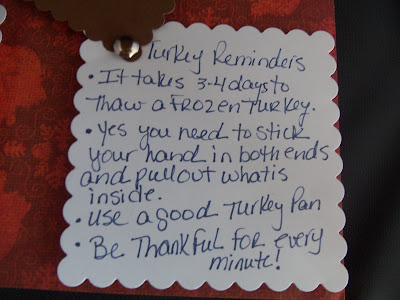 Turkey Reminders
• It takes 3-4 days to
thaw a FROZEN TURKEY.
• Yes you need to stick
your hand in both ends
and pull out what is
inside.
• Use a good Turkey Pan
• Be Thankful for every
minute!